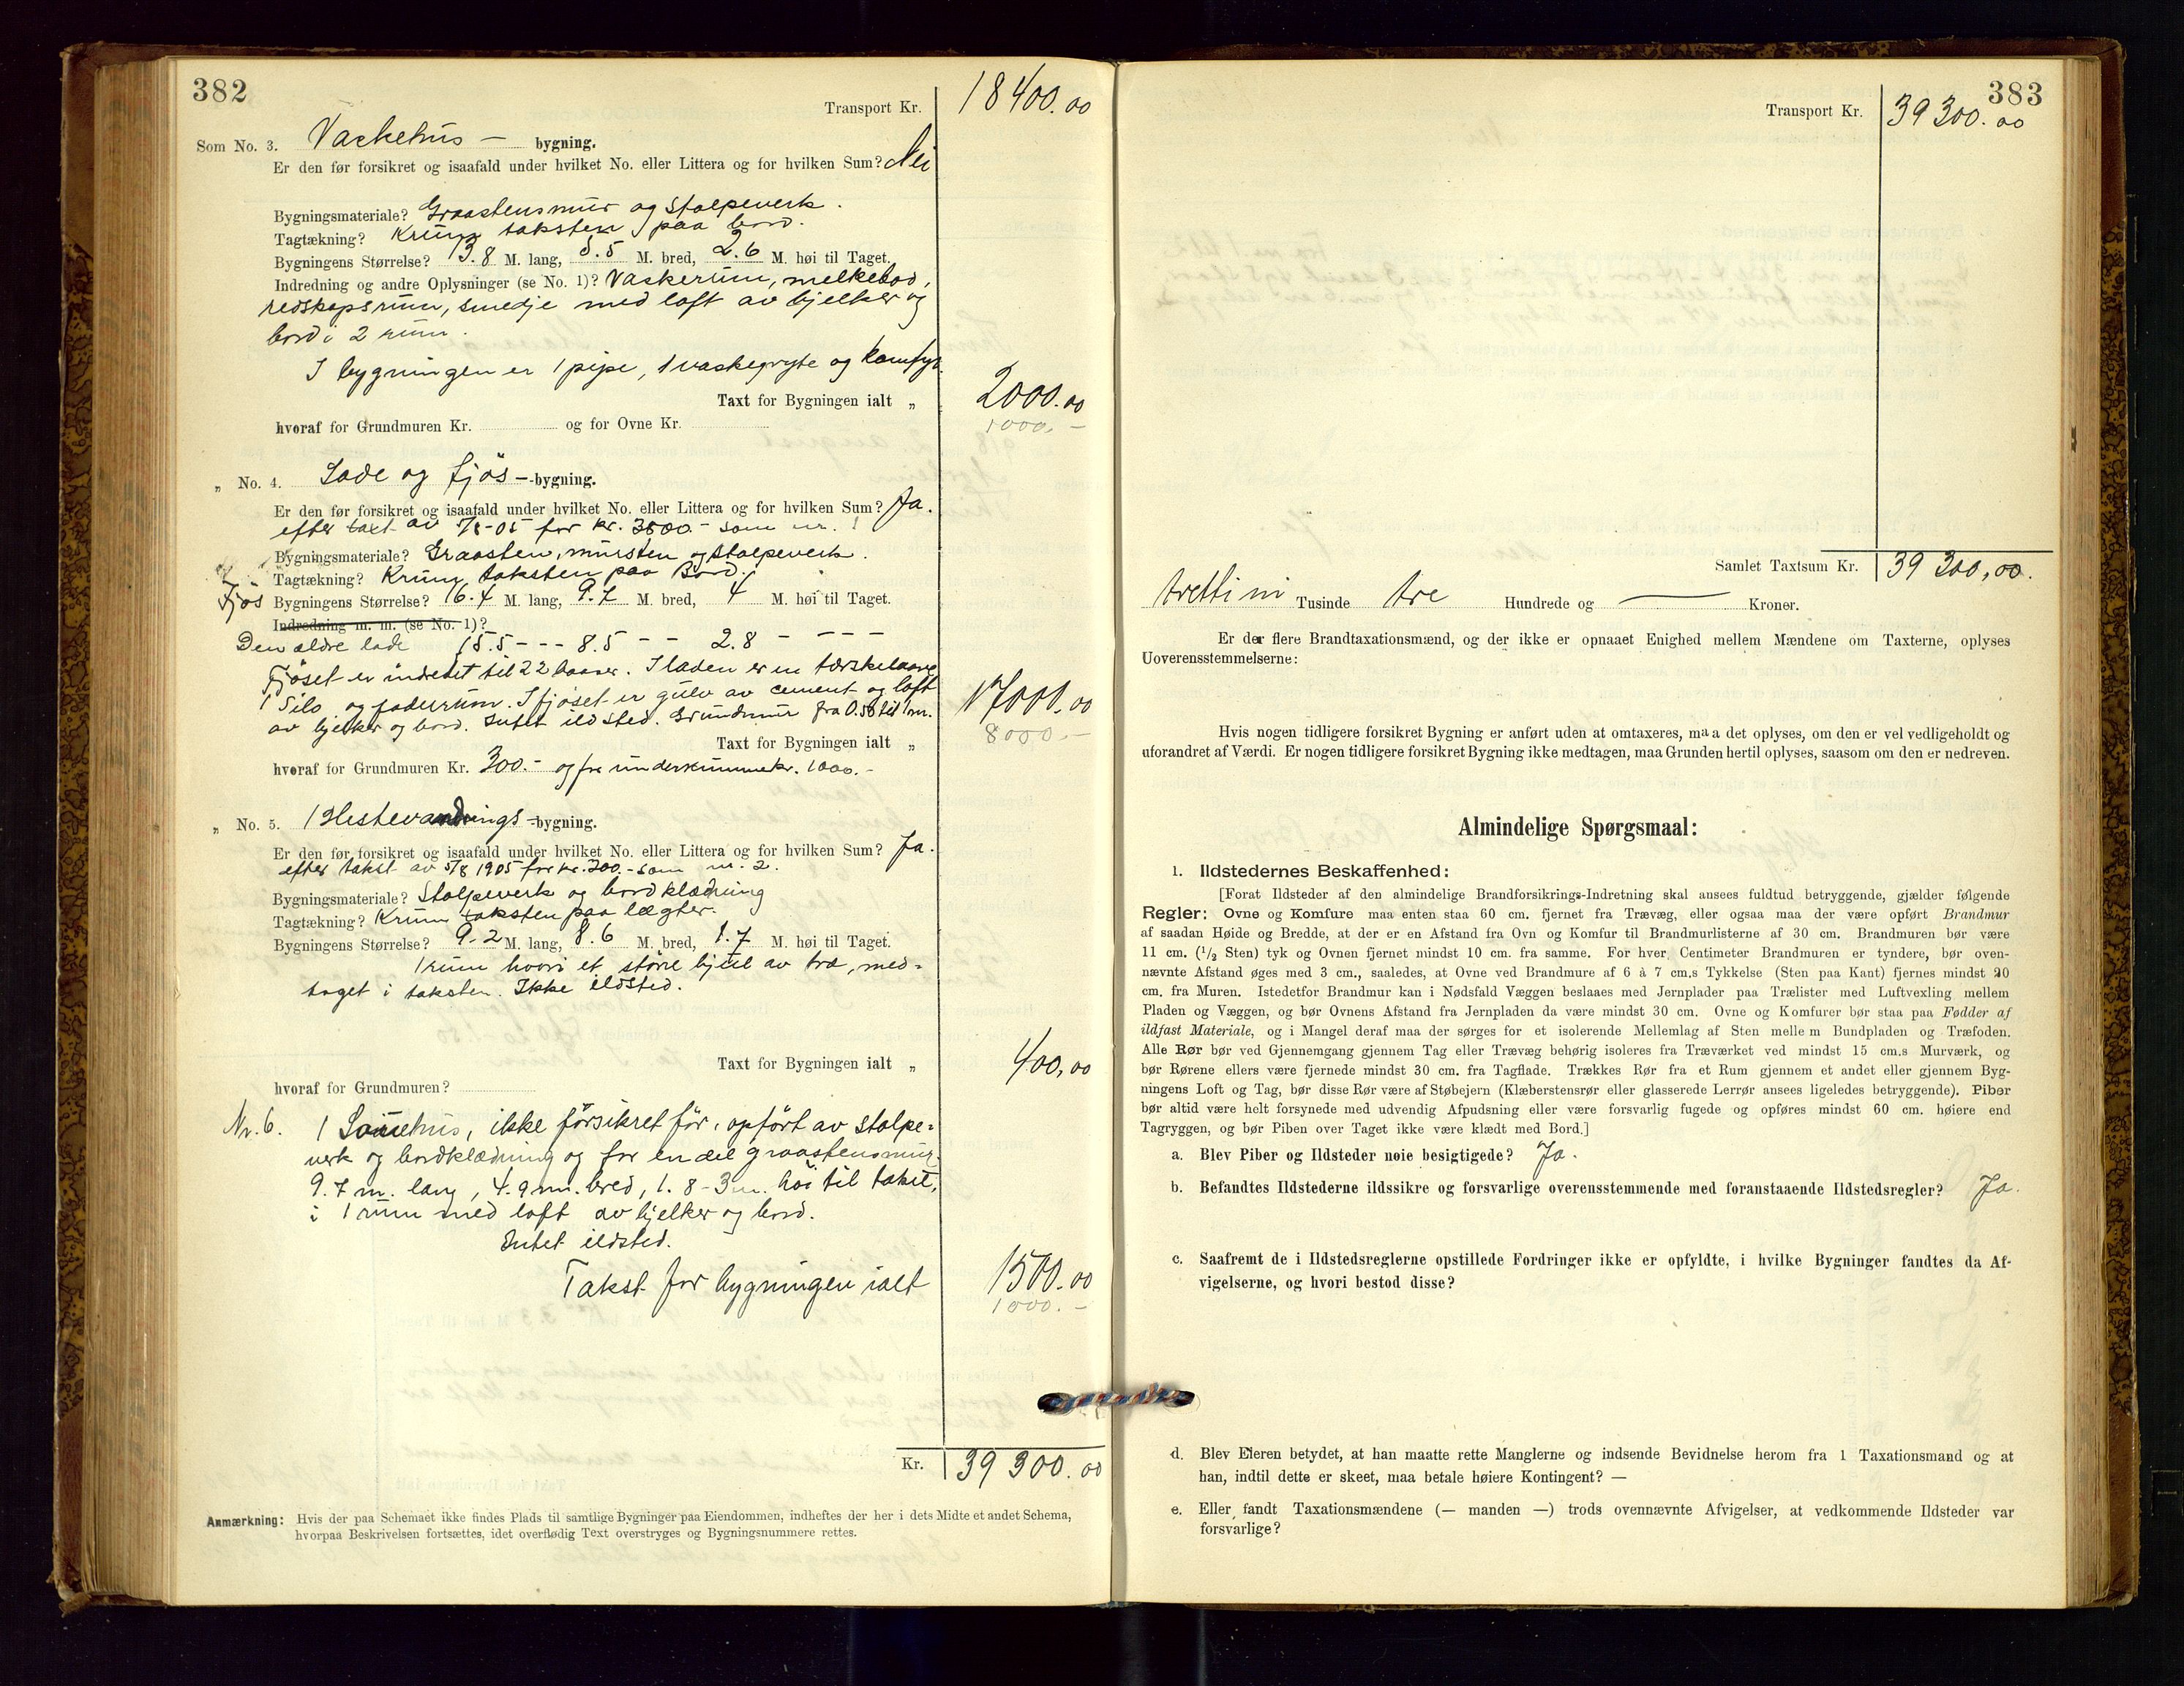 382
Transport Kr. 18400.00
Som No. 3. Vaskehus — bygning.
Er den før forsikret og isaafald under hvilket No. eller Littera og for hvilken Sum? Nei
Bygningsmateriale? Graastensmur og stolpeverk.
Tagtækning? Krum taksten paa bord.
Bygningens Størrelse? 13.8 M. lang, 5.5 M. bred, 2.6 M. høi til Taget.
Indredning og andre Oplysninger (se No. 1)? Vaskerum, melkebod,
redskapsrum, smedje med loft av bjelker og
bord i 2 rum.
I bygningen er 1 pipe, 1 vaskegryte og komfyr.
Taxt for Bygningen ialt „ 2000.00
hvoraf for Grundmuren Kr. og for Ovne Kr. 1000. –
„ No. 4. Lade og fjös – bygning.
Er den før forsikret og isaafald under hvilket No. eller Littera og for hvilken Sum? Ja.
efter taxt av 5/8-05 for kr. 3800.– som nr. 1
Bygningsmateriale? Graasten, mursten og stolpeverk.
Tagtækning? Krum taksten paa Bord.
Fjös Bygningens Størrelse? 16.4 M. lang, 9.7 M. bred, 4 M. høi til Taget.
Indredning m. m. (se No. 1)?
Den ældre lade 15.5 - - - 8.5 - - 2.8 - - - -
Fjöset er indredet til 22 baaser. I laden er en tærskelaave
1 Silo og foderrum. I fjöset er gulv av cement og loft
av bjelker og bord. Intet ildsted. Grundmur fra 0.50 til 1 m. 17000.00
Taxt for Bygningen ialt „ 8000.–
hvoraf for Grundmuren Kr. 300.– og for underrummet kr. 1000.–
„ No. 5. 1 Hestevandrings – bygning.
Er den før forsikret og isaafald under hvilket No. eller Littera og for hvilken Sum? Ja.
efter takst av 5/8 1905 for kr. 200.– som nr. 2.
Bygningsmateriale? Stolpeverk og bordklædning
Tagtækning? Krum taksten paa lægter.
Bygningens Størrelse? 9.2 M. lang, 8.6 M. bred, 1.7 M. høi til Taget.
1 rum hvori et större hjul av træ, med-
taget i taksten. Ikke ildsted.
Taxt for Bygningen ialt „ 400,00
hvoraf for Grundmuren?
Nr. 6. 1 hus, ikke försikret för, opfört av stolpe-
verk og bordklædning og for en del graastensmur.
9.7 m. lang, 4.9 m. bred, 1.8 – 3 m. höi til taket,
i 1 rum med loft av bjelker og bord.
Intet ildsted.
Takst for bygningen ialt 1500.00
1000. –
Kr. 39300.00
Anmærkning: Hvis der paa Schemaet ikke findes Plads til samtlige Bygninger paa Eiendommen, indheftes der her i dets Midte et andet Schema,
hvorpaa Beskrivelsen fortsættes, idet overflødig Text overstryges og Bygningsnummere rettes.
383
Transport Kr. 39300.00
Samlet Taxtsum Kr. 39300,00.
trettini Tusinde tre Hundrede og — Kroner.
Er der flere Brandtaxationsmænd, og der ikke er opnaaet Enighed mellem Mændene om Taxterne, oplyses
Uoverensstemmelserne:
Hvis nogen tidligere forsikret Bygning er anført uden at omtaxeres, maa det oplyses, om den er vel vedligeholdt og
uforandret af Værdi. Er nogen tidligere forsikret Bygning ikke medtagen, maa Grunden hertil oplyses, saasom om den er nedreven.
Almindelige Spørgsmaal:
1. Ildstedernes Beskaffenhed:
[Forat Ildsteder af den almindelige Brandforsikrings-Indretning skal ansees fuldtud betryggende, gjælder følgende
Regler: Ovne og Komfure maa enten staa 60 cm. fjernet fra Trævæg, eller ogsaa maa der være opført Brandmur
af saadan Høide og Bredde, at der er en Afstand fra Ovn og Komfur til Brandmurlisterne af 30 cm. Brandmuren bør være
11 cm. (1/2 Sten) tyk og Ovnen fjernet mindst 10 cm. fra samme. For hver Centimeter Brandmuren er tyndere, bør oven-
nævnte Afstand øges med 3 cm., saaledes, at Ovne ved Brandmure af 6 à 7 cm.s Tykkelse (Sten paa Kant) fjernes mindst 20
cm. fra Muren. Istedetfor Brandmur kan i Nødsfald Væggen beslaaes med Jernplader paa Trælister med Luftvexling mellem
Pladen og Væggen, og bør Ovnens Afstand fra Jernpladen da være mindst 30 cm. Ovne og Komfurer bør staa paa Fødder af
ildfast Materiale, og i Mangel deraf maa der sørges for et isolerende Mellemlag af Sten mellem Bundpladen og Træfoden.
Alle Rør bør ved Gjennemgang gjennem Tag eller Trævæg behørig isoleres fra Træværket ved mindst 15 cm.s Murværk, og
bør Rørene ellers være fjernede mindst 30 cm. fra Tagflade. Trækkes Rør fra et Rum gjennem et andet eller gjennem Byg-
ningens Loft og Tag, bør disse Rør være af Støbejern (Klæberstensrør eller glasserede Lerrør ansees ligeledes betryggende). Piber
bør altid være helt forsynede med udvendig Afpudsning eller være forsvarlig fugede og opføres mindst 60 cm. høiere end
Tagryggen, og bør Piben over Taget ikke være klædt med Bord.]
a. Blev Piber og Ildsteder nøie besigtigede? Ja.
b. Befandtes Ildstederne ildssikre og forsvarlige overensstemmende med foranstaaende Ildstedsregler? Ja.
c. Saafremt de i Ildstedsreglerne opstillede Fordringer ikke er opfyldte, i hvilke Bygninger fandtes da Af-
vigelserne, og hvori bestod disse?
d. Blev Eieren betydet, at han maatte rette Manglerne og indsende Bevidnelse herom fra 1 Taxationsmand og at
han, indtil dette er skeet, maa betale høiere Kontingent? —
e. Eller fandt Taxationsmændene (— manden —) trods ovennævnte Afvigelser, at vedkommende Ildsteder var
forsvarlige?